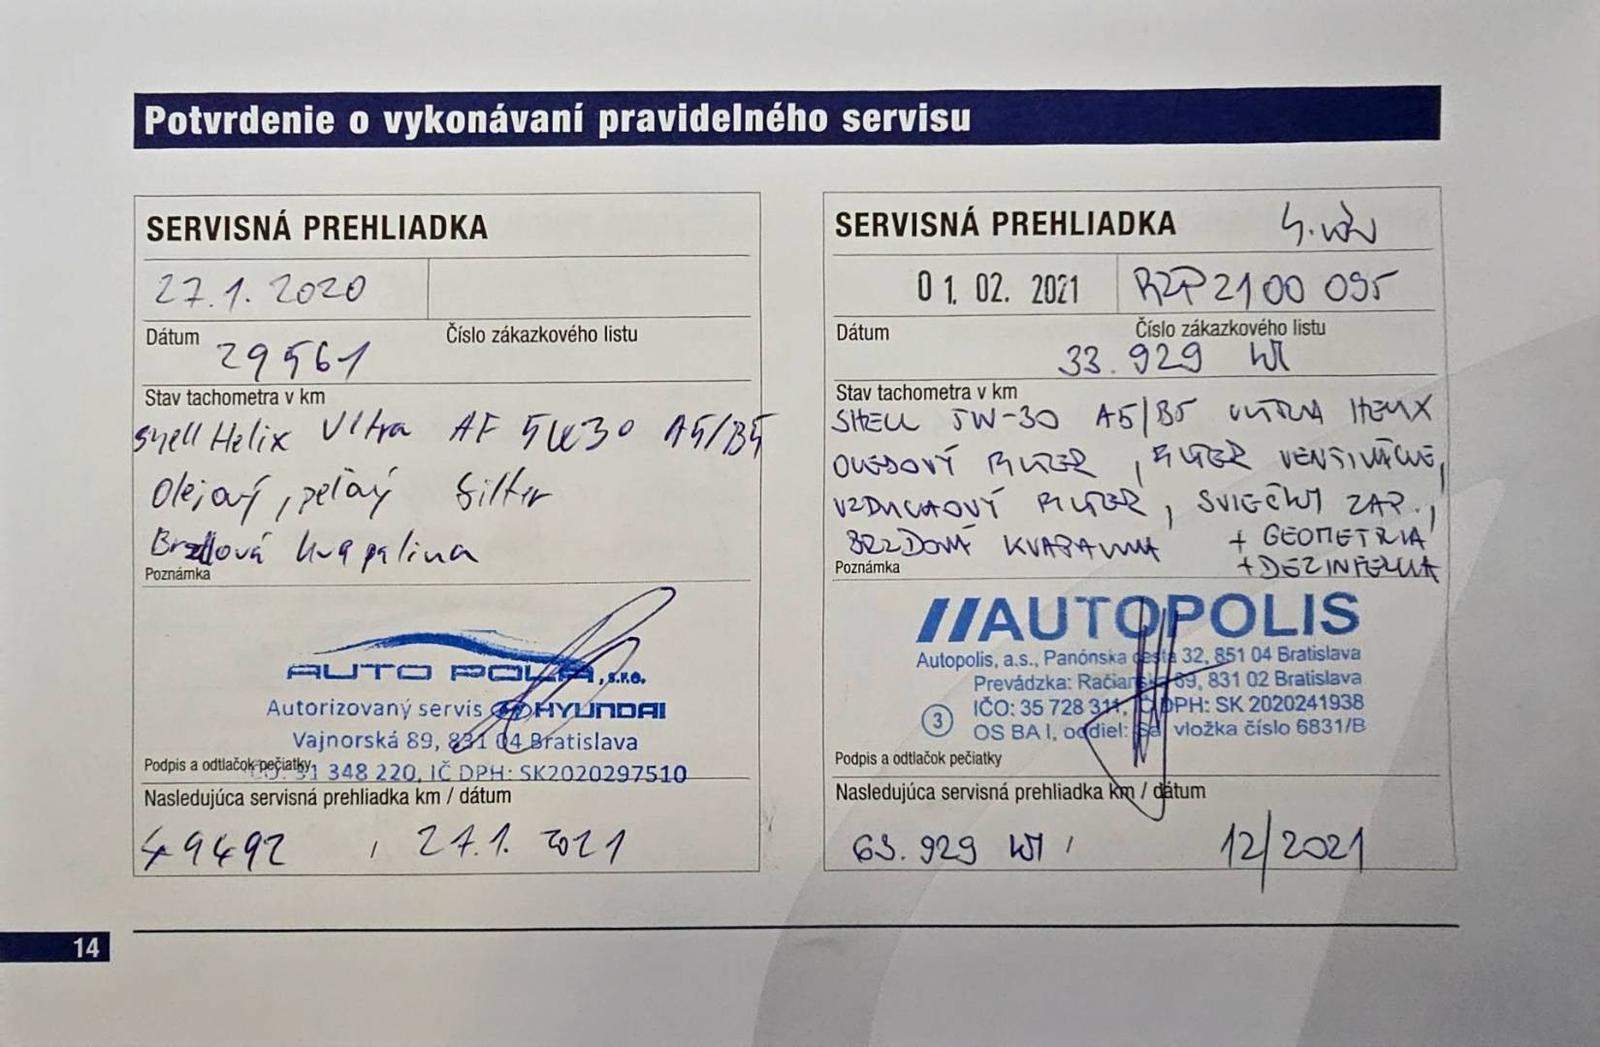 Potvrdenie o vykonávaní pravidelného servisu
SERVISNÁ PREHLIADKA
27.1.2020
Dátum
Číslo zákazkového listu
29561
Stav tachometra v km
Shell Helix Ultra AF 5W30 A5/B5
Olejový, peľový filter
Brzdová kvapalina
Poznámka
AUTO POLA, s.r.o.
Autorizovaný servis HYUNDAI
Vajnorská 89, 831 04 Bratislava
Podpis a odtlačok pečiatky
31 348 220, IČ DPH: SK2020297510
Nasledujúca servisná prehliadka km / dátum
49492 , 27.1.2021
SERVISNÁ PREHLIADKA
01. 02. 2021
RZP2100 095
Dátum
Číslo zákazkového listu
33.929 KM
Stav tachometra v km
SHELL 5W-30 A5/B5 ULTRA HELIX
OLEJOVÝ FILTER, FILTER VENTILÁCIE,
VZDUCHOVÝ FILTER, SVIEČKY ZAP.,
BRZDOVÁ KVAPALINA + GEOMETRIA
+ DEZINFEKCIA
Poznámka
//AUTOPOLIS
Autopolis, a.s., Panónska cesta 32, 851 04 Bratislava
Prevádzka: Račianska 89, 831 02 Bratislava
IČO: 35 728 311, IČ DPH: SK 2020241938
3 OS BA I, oddiel: Sa, vložka číslo 6831/B
Podpis a odtlačok pečiatky
Nasledujúca servisná prehliadka km / dátum
63.929 KM , 12/2021
14